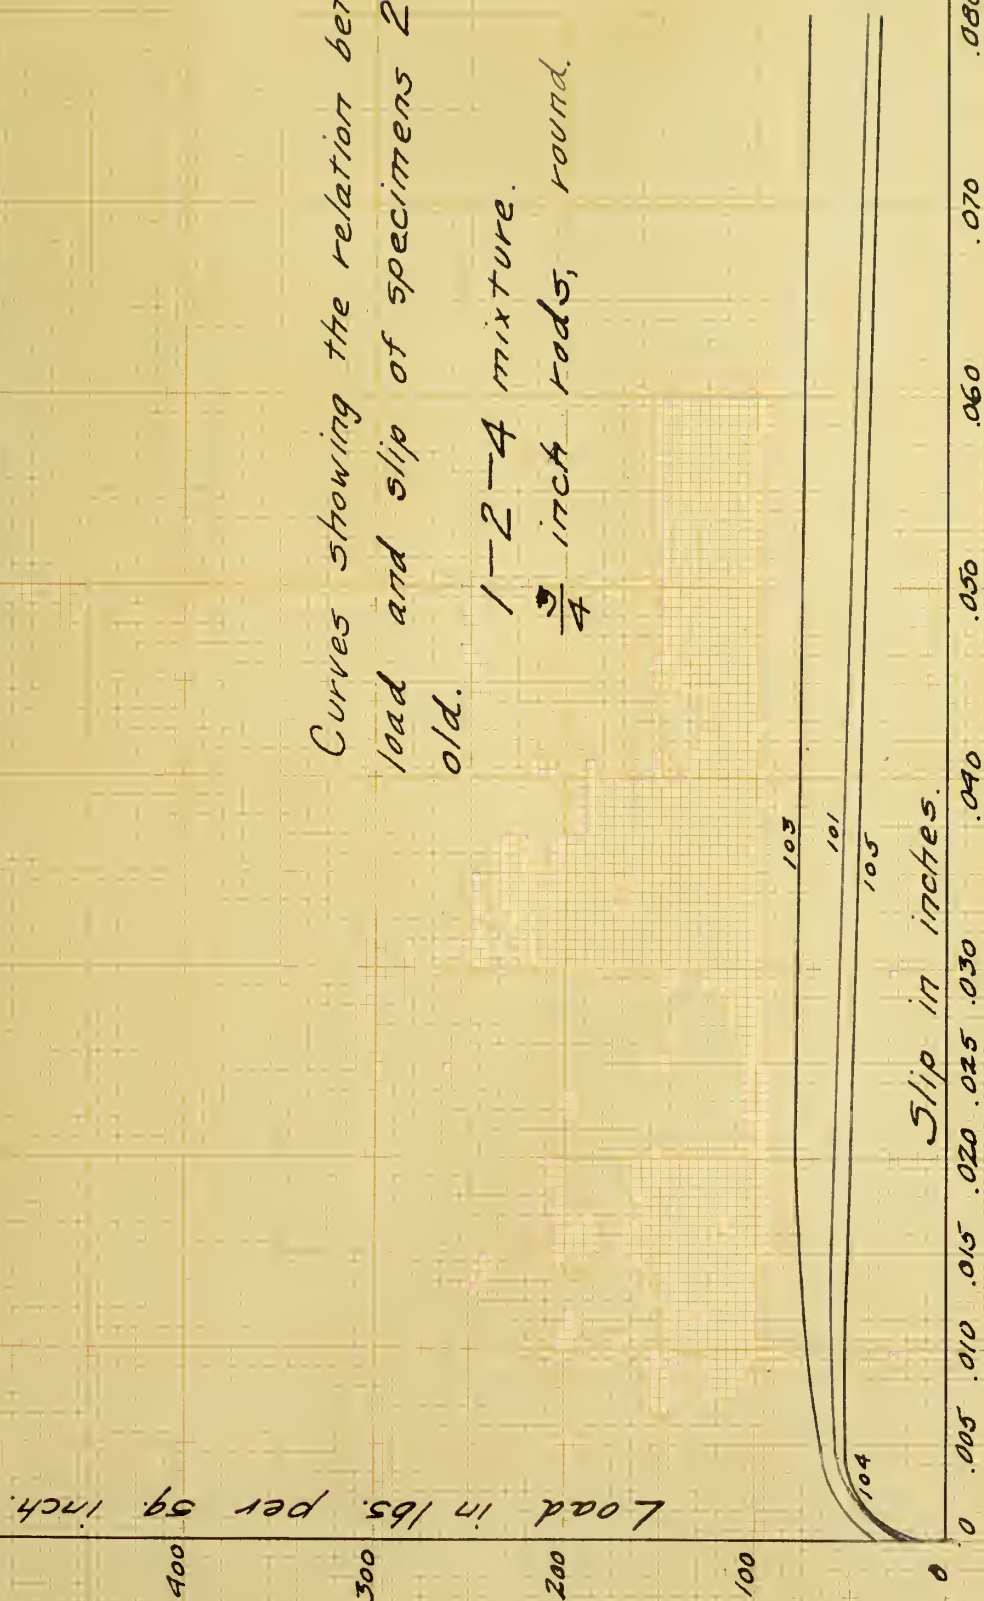 Curves showing the relation
load and slip of specimens 2
old.
1-2-4 mixture.
3/4 inch rods, round.
Load in lbs. per sq. inch.
400
300
200
100
0
103
101
105
104
Slip in inches.
0 .005 .010 .015 .020 .025 .030 .040 .050 .060 .070 .080